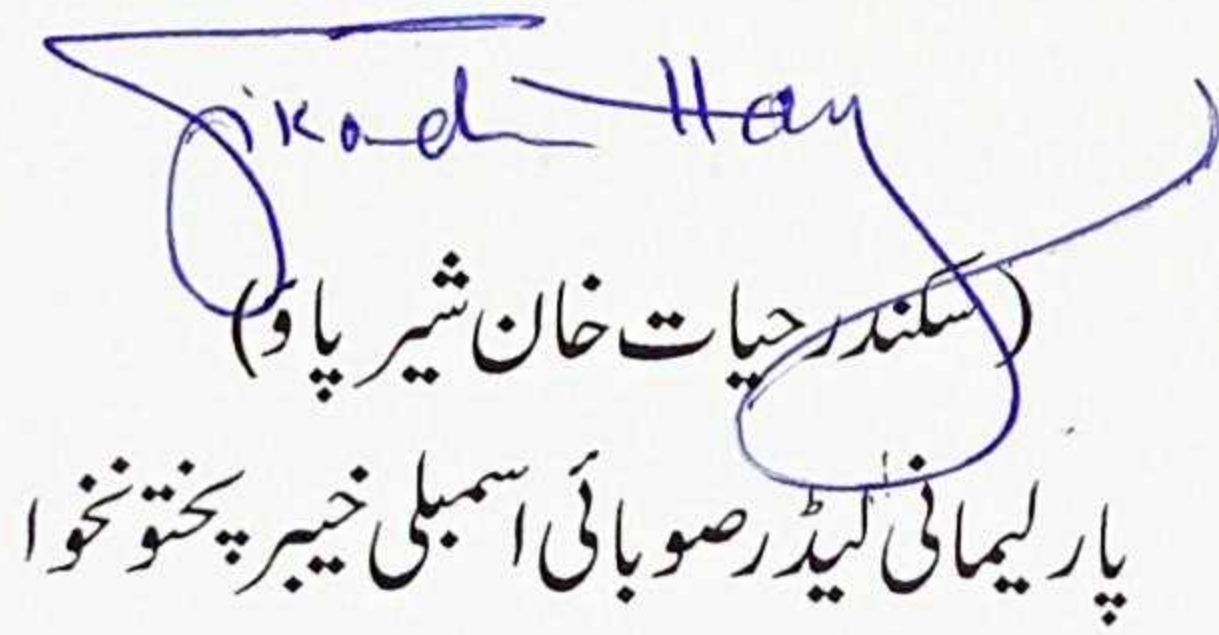 Sikand Hay
(سکندر حیات خان شیر پاؤ)
پارلیمانی لیڈر صوبائی اسمبلی خیبر پختونخوا